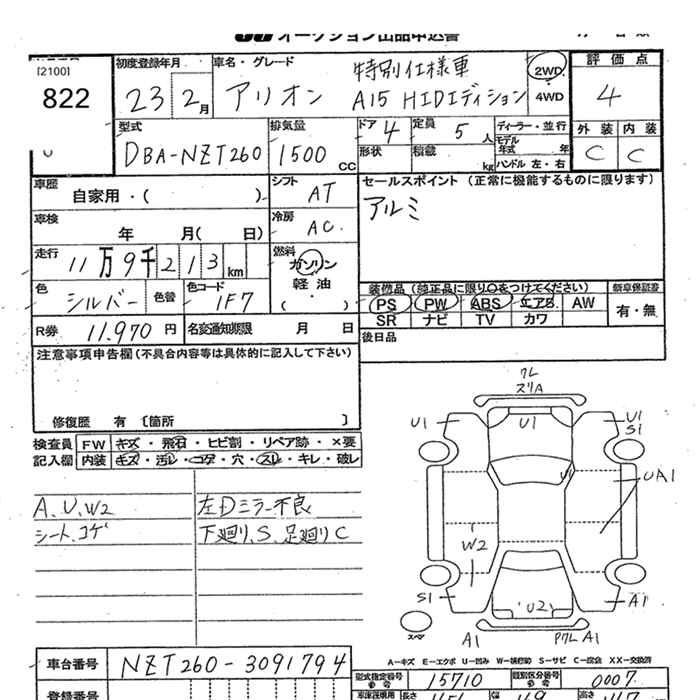 オークション出品申込書
[2100]
822
初度登録年月
23 2月
車名・グレード
特別仕様車
アリオン A15 HIDエディション
2WD
4WD
評価点
4
型式
DBA-NZT260
排気量
1500 CC
ドア 4
定員 5 人
形状
積載 kg
ディーラー・並行
モデル年式 年
ハンドル 左・右
外装 内装
C C
車歴
自家用・( )
シフト
AT
セールスポイント (正常に機能するものに限ります)
アルミ
車検
年 月( 日)
冷房
AC
走行
11万9千213km
燃料
ガソリン
軽油
( )
色
シルバー
色替
色コード
1F7
装備品 (純正品に限り○をつけてください)
PS PW ABS エアB AW
SR ナビ TV カワ
新車保証書
有・無
R券 11.970 円
名変通知期限 月 日
後日品
注意事項申告欄(不具合内容等は具体的に記入して下さい)
修復歴 有 〔箇所 〕
検査員記入欄
FW キズ・飛石・ヒビ割・リペア跡・×要
内装 キズ・汚レ・コゲ・穴・スレ・キレ・破レ
A.U.W2
シート.コゲ
左Dミラー不良
下廻り.S.足廻りC
ワレ
スリA
U1
U1
U1
S1
U1
UA1
W2
S1
U2
A1
スペア
A1
ワレA1
A-キズ E-エクボ U-凹み W-補修跡 S-サビ C-腐食 XX-交換済
車台番号
NZT260-3091794
型式指定番号
15710
類別区分番号
0007
登録番号
長さ
高さ